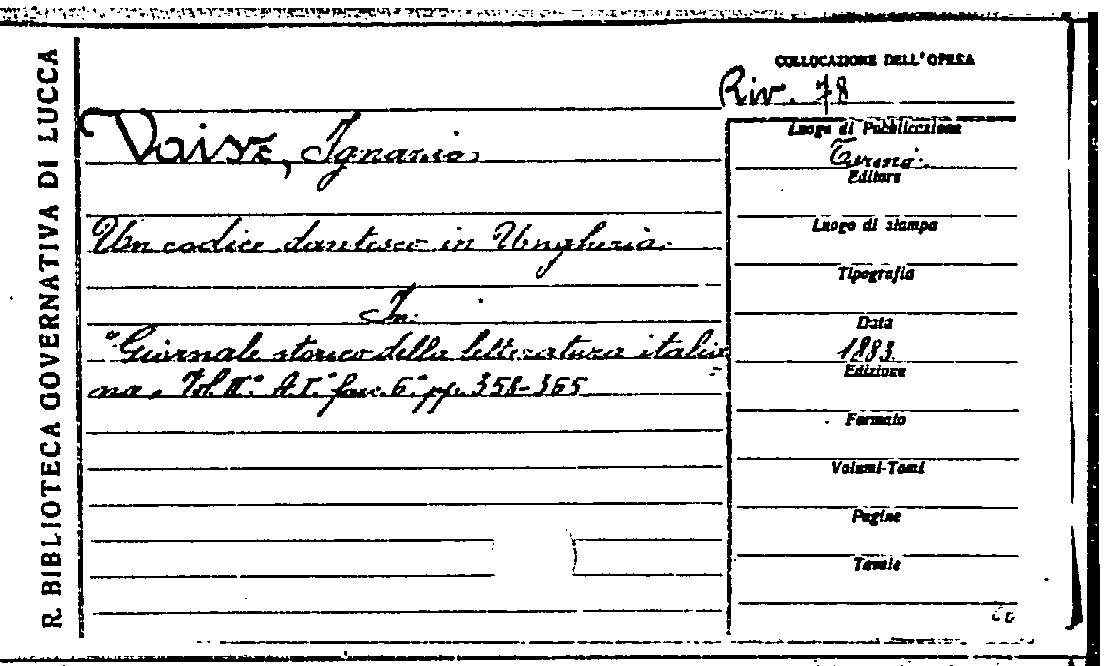 R. BIBLIOTECA GOVERNATIVA DI LUCCA
COLLOCAZIONE DELL'OPERA
Riv. 78
Vaisz, Ignazio
Un codice dantesco in Ungheria.
In:
"Giornale storico della letteratura italia-
na, Vol. II° A. I.° fasc. 6° pp. 358-365
Luogo di Pubblicazione
Torino.
Editore
Luogo di stampa
Tipografia
Data
1883
Edizione
Formato
Volumi-Tomi
Pagine
Tavole